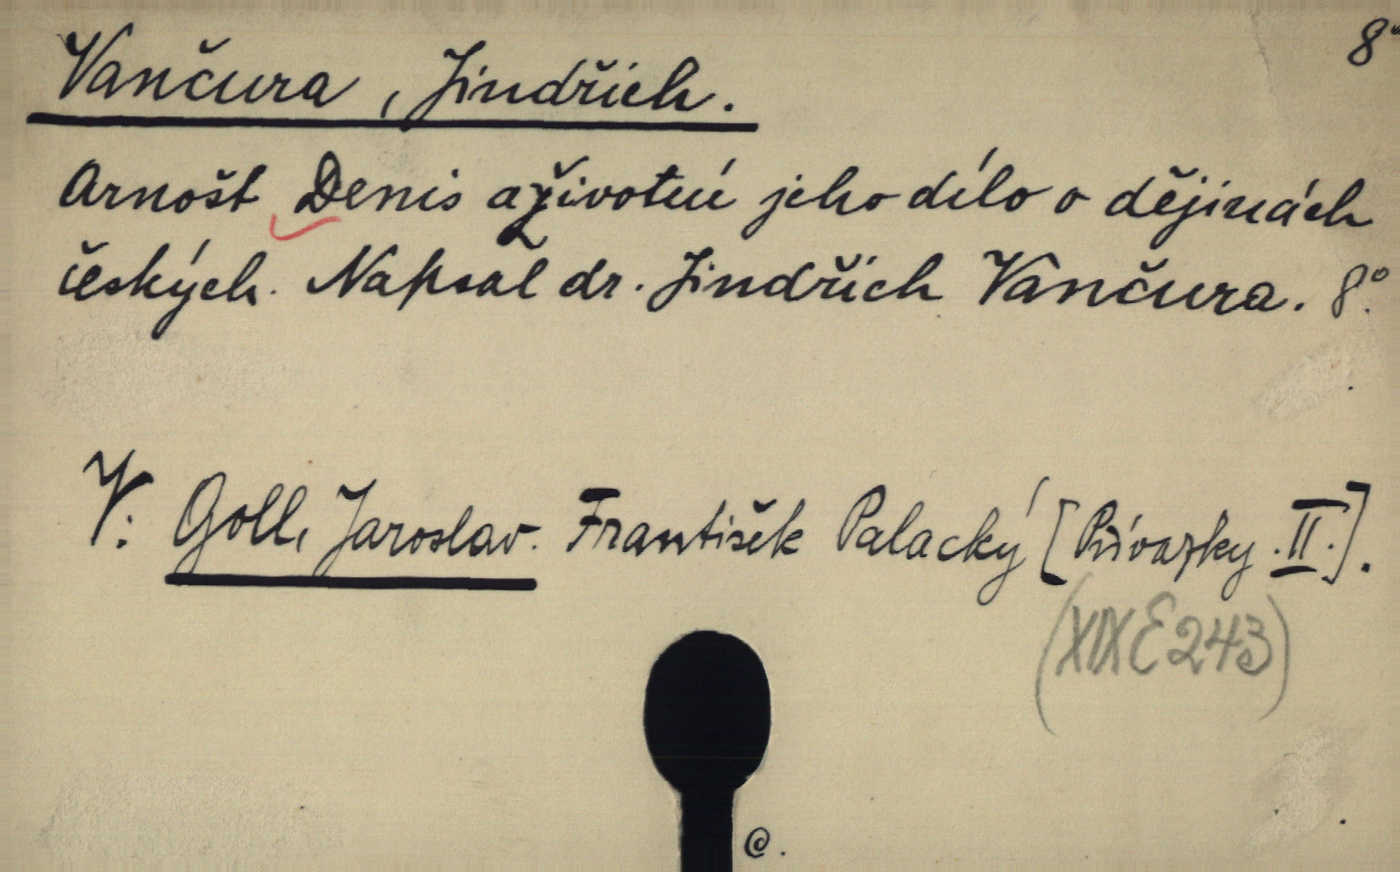 8°
Vančura, Jindřich.
Arnošt Denis a životní jeho dílo o dějinách
českých. Napsal dr. Jindřich Vančura. 8°.
V: Goll, Jaroslav. František Palacký [Přívazky II.].
(XIX E 243)
@.